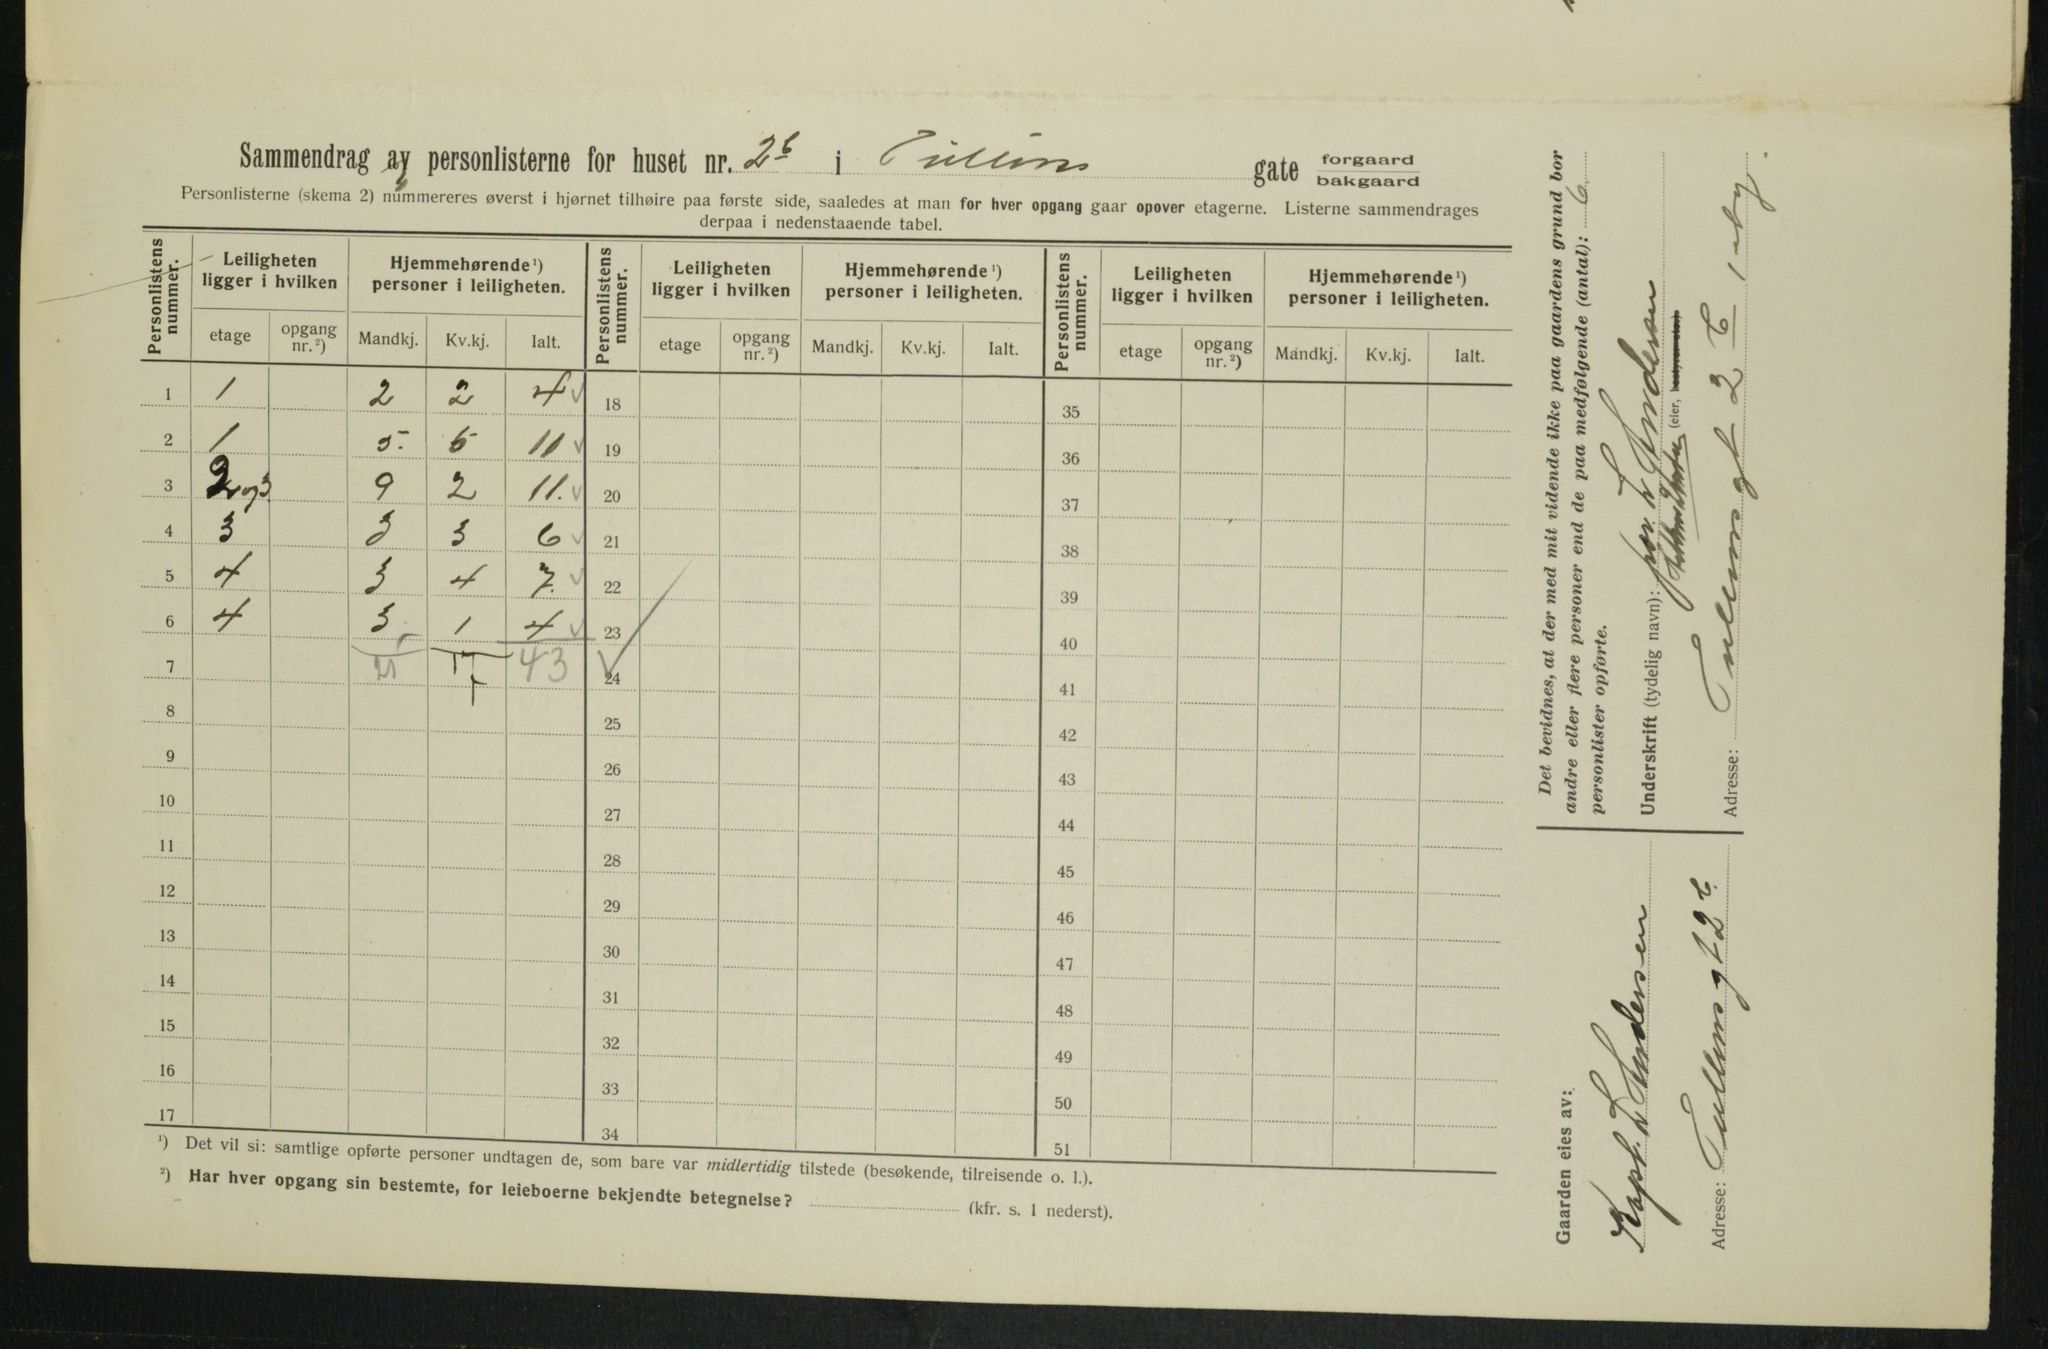 Sammendrag av personlisterne for huset nr. 2b i Tullins gate forgaard bakgaard
Personlisterne (skema 2) nummereres øverst i hjørnet tilhøire paa første side, saaledes at man for hver opgang gaar opover etagerne. Listerne sammendrages
derpaa i nedenstaaende tabel.
Personlistens nummer. Leiligheten ligger i hvilken Hjemmehørende ¹) personer i leiligheten. Personlistens nummer. Leiligheten ligger i hvilken Hjemmehørende ¹) personer i leiligheten. Personlistens nummer. Leiligheten ligger i hvilken Hjemmehørende ¹) personer i leiligheten.
etage opgang nr. ²) Mandkj. Kv.kj. Ialt. etage opgang nr. ²) Mandkj. Kv.kj. Ialt. etage opgang nr. ²) Mandkj. Kv.kj. Ialt.
1 1 2 2 4 18 35
2 1 5. 5 10 19 36
3 2 og 3 9 2 11. 20 37
4 3 3 3 6 21 38
5 4 3 4 7. 22 39
6 4 3 1 4 23 40
7 17 43 24 41
8 25 42
9 26 43
10 27 44
11 28 45
12 29 46
13 30 47
14 31 48
15 32 49
16 33 50
17 34 51
¹) Det vil si: samtlige opførte personer undtagen de, som bare var midlertidig tilstede (besøkende, tilreisende o. l.).
²) Har hver opgang sin bestemte, for leieboerne bekjendte betegnelse? (kfr. s. 1 nederst).
Det bevidnes, at der med mit vidende ikke paa gaardens grund bor
andre eller flere personer end de paa medfølgende (antal): 6
personlister opførte.
Underskrift (tydelig navn): L Andersen
(eier, bestyrer etc.)
Adresse: Tullinsgt 2 b
Gaarden eies av:
Kapt. L Andersen
Adresse: Tullinsgt 2 b.